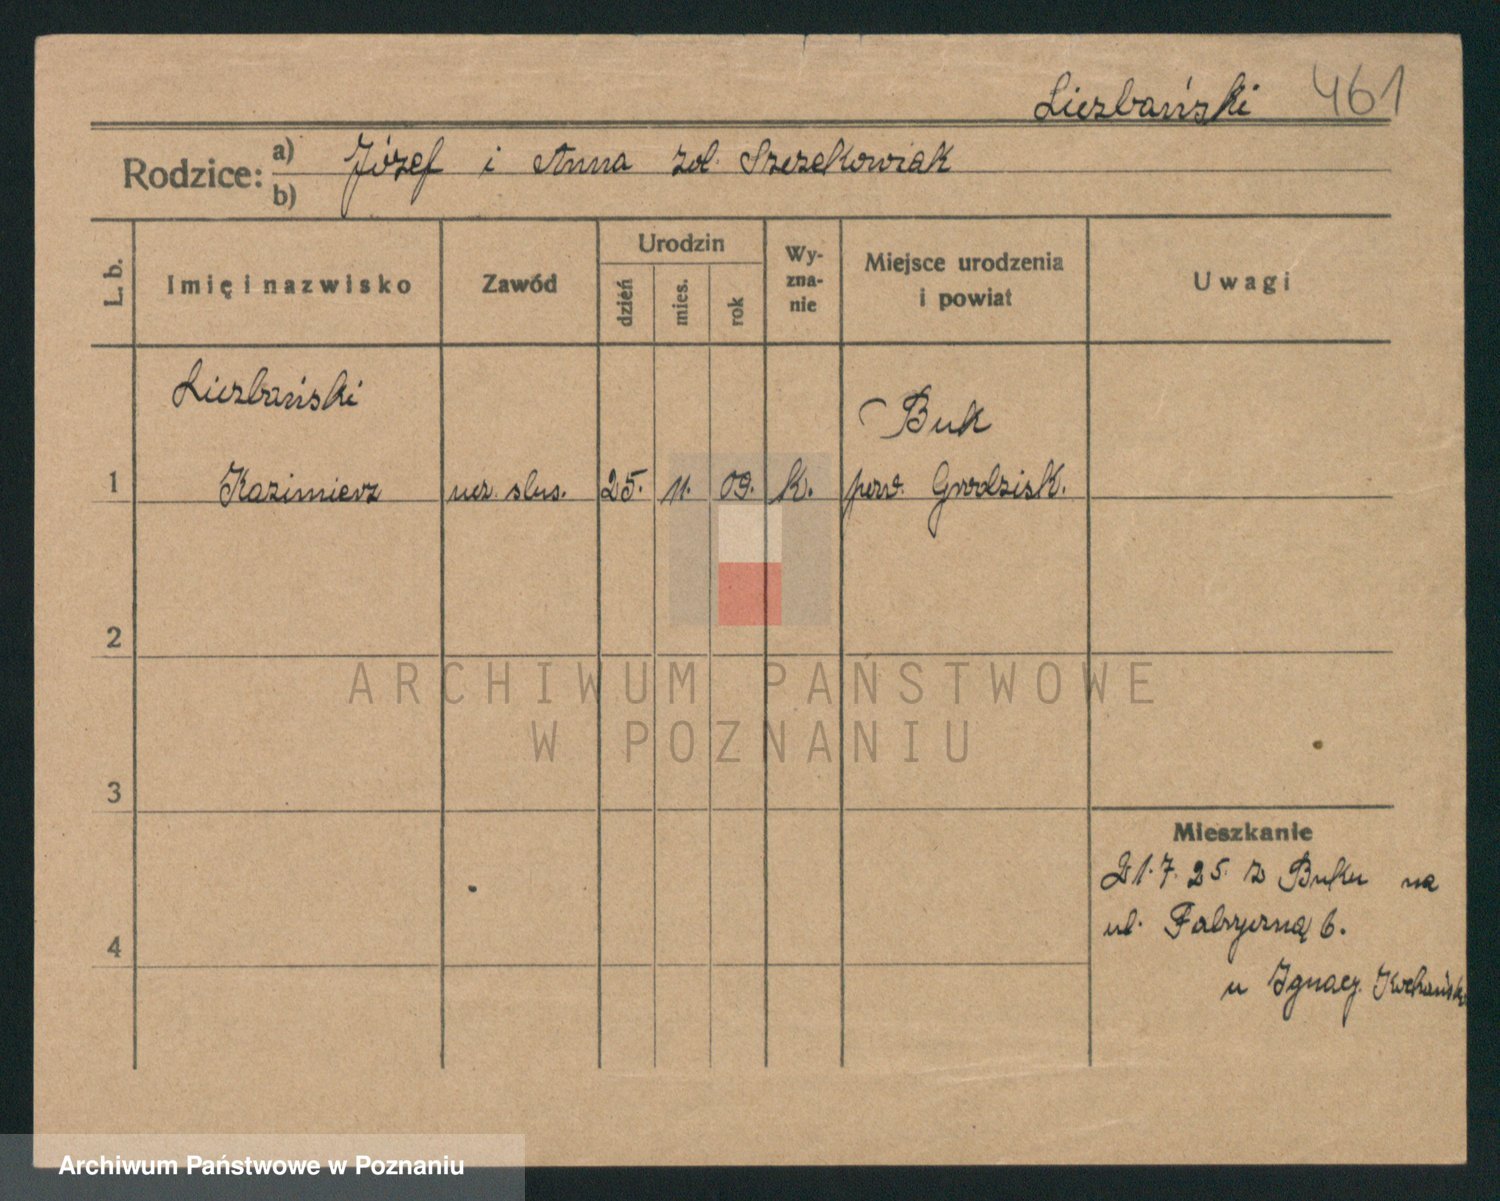 Liczbański 461
Rodzice: a) Józef i Anna zol. Szczekowiak
b)
L. b.
Imię i nazwisko
Zawód
Urodzin
dzień
mies.
rok
Wy-
zna-
nie
Miejsce urodzenia
i powiat
Uwagi
Liczbański
Buk
1 Kazimierz ucz. slus. 25. 11. 09. K. pow. Grodzisk.
2
ARCHIWUM PAŃSTWOWE
W POZNANIU
3
Mieszkanie
21. 7. 25. z Buku na
4
ul. Fabryczną 6.
u Ignacy.
Archiwum Państwowe w Poznaniu